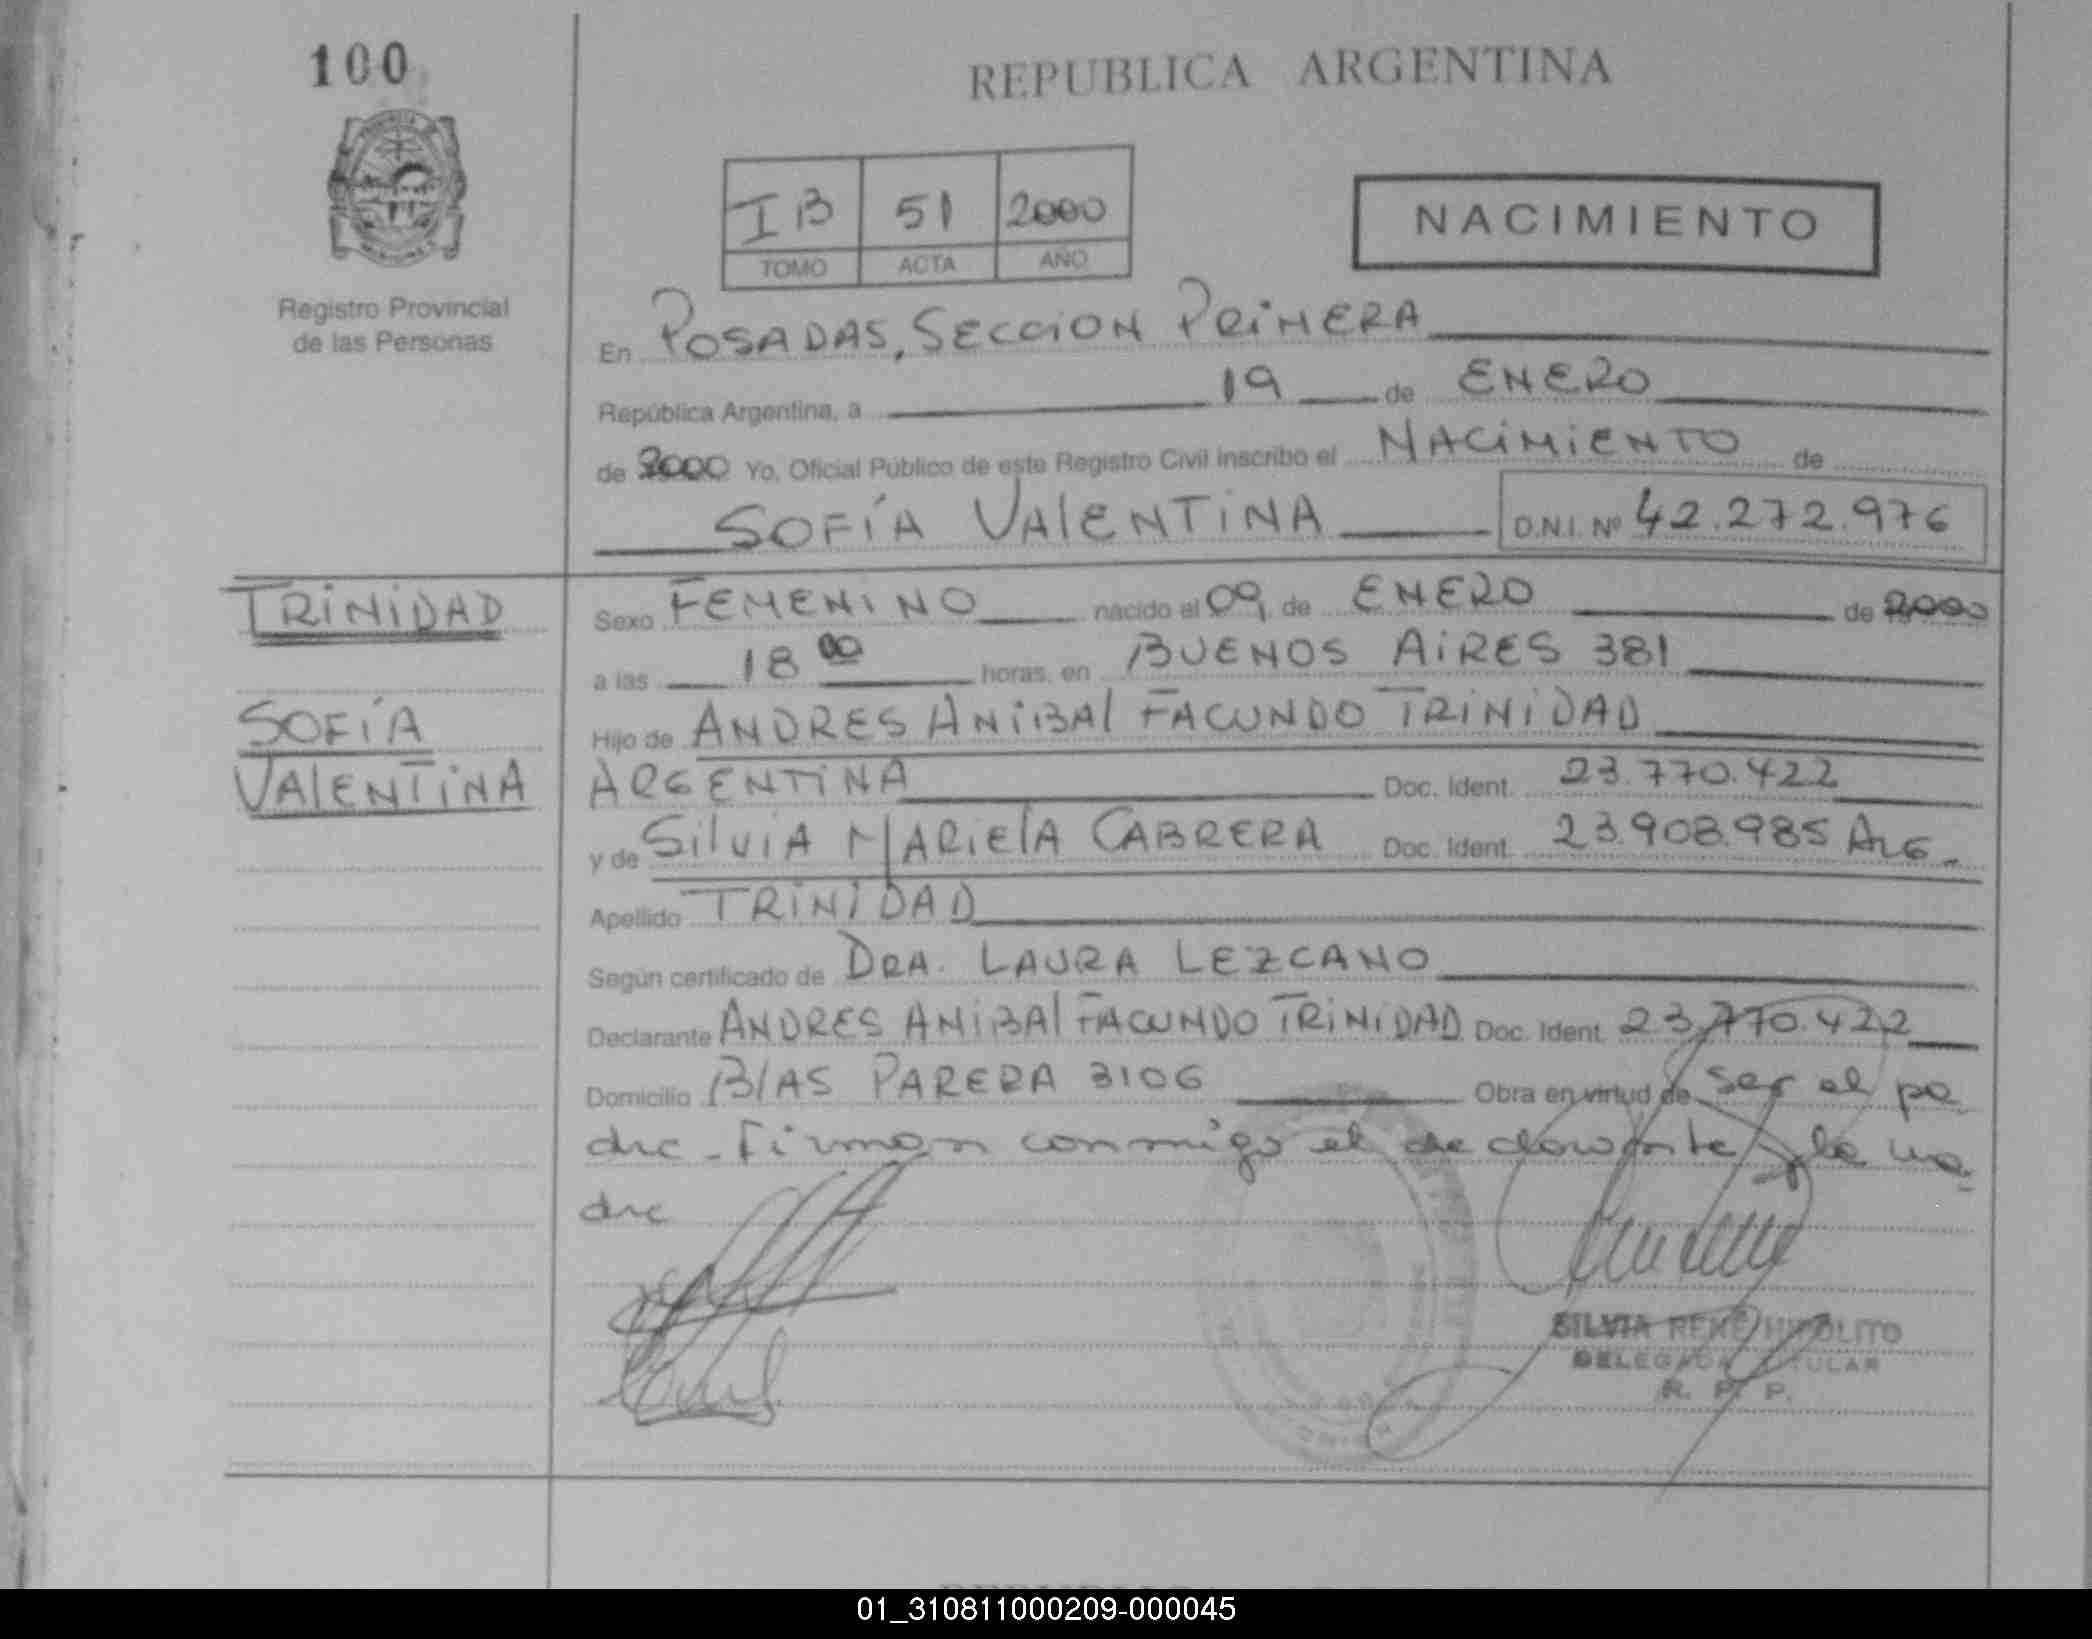 100
REPUBLICA ARGENTINA
Registro Provincial
de las Personas
I B 51 2000
TOMO ACTA AÑO
NACIMIENTO
En POSADAS, SECCION PRIMERA
República Argentina, a 19 de ENERO
de 2000 Yo, Oficial Público de este Registro Civil inscribo el NACIMIENTO de
SOFÍA VALENTINA D.N.I. Nº 42.272.976
TRINIDAD
SOFÍA
VALENTINA
Sexo FEMENINO nacido el 09 de ENERO de 2000
a las 18 00 horas, en BUENOS AIRES 381
Hijo de ANDRES ANIBAL FACUNDO TRINIDAD
ARGENTINA Doc. Ident. 23.770.422
y de SILVIA MARIELA CABRERA Doc. Ident. 23.908.985 ARG.
Apellido TRINIDAD
Según certificado de DRA. LAURA LEZCANO
Declarante ANDRES ANIBAL FACUNDO TRINIDAD Doc. Ident. 23.770.422
Domicilio BLAS PARERA 3106 Obra en virtud de ser el pa
dre - Firman conmigo el declarante y la ma
dre
SILVIA RENE HIPOLITO
DELEGADA TITULAR
R. P. P.
01_310811000209-000045